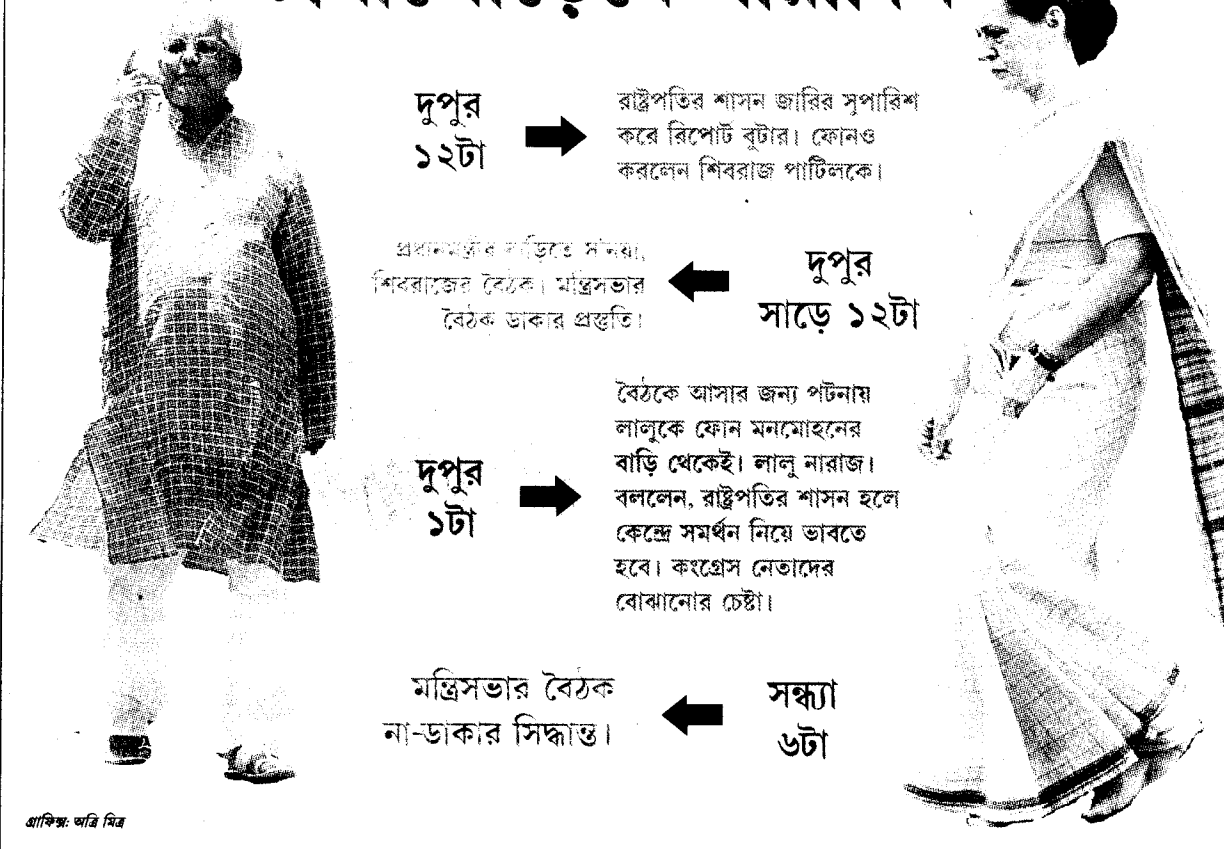 দুপুর
১২টা
রাষ্ট্রপতির শাসন জারির সুপারিশ
করে রিপোর্ট বুটার। ফোনও
করলেন শিবরাজ পাটিলকে।
প্রধানমন্ত্রীর বাড়িতে সনিয়া,
শিবরাজের বৈঠক। মন্ত্রিসভার
বৈঠক ডাকার প্রস্তুতি।
দুপুর
সাড়ে ১২টা
দুপুর
১টা
বৈঠকে আসার জন্য পটনায়
লালুকে ফোন মনমোহনের
বাড়ি থেকেই। লালু নারাজ।
বললেন, রাষ্ট্রপতির শাসন হলে
কেন্দ্রে সমর্থন নিয়ে ভাবতে
হবে। কংগ্রেস নেতাদের
বোঝানোর চেষ্টা।
মন্ত্রিসভার বৈঠক
না-ডাকার সিদ্ধান্ত।
সন্ধ্যা
৬টা
গ্রাফিক্স: অত্রি মিত্র